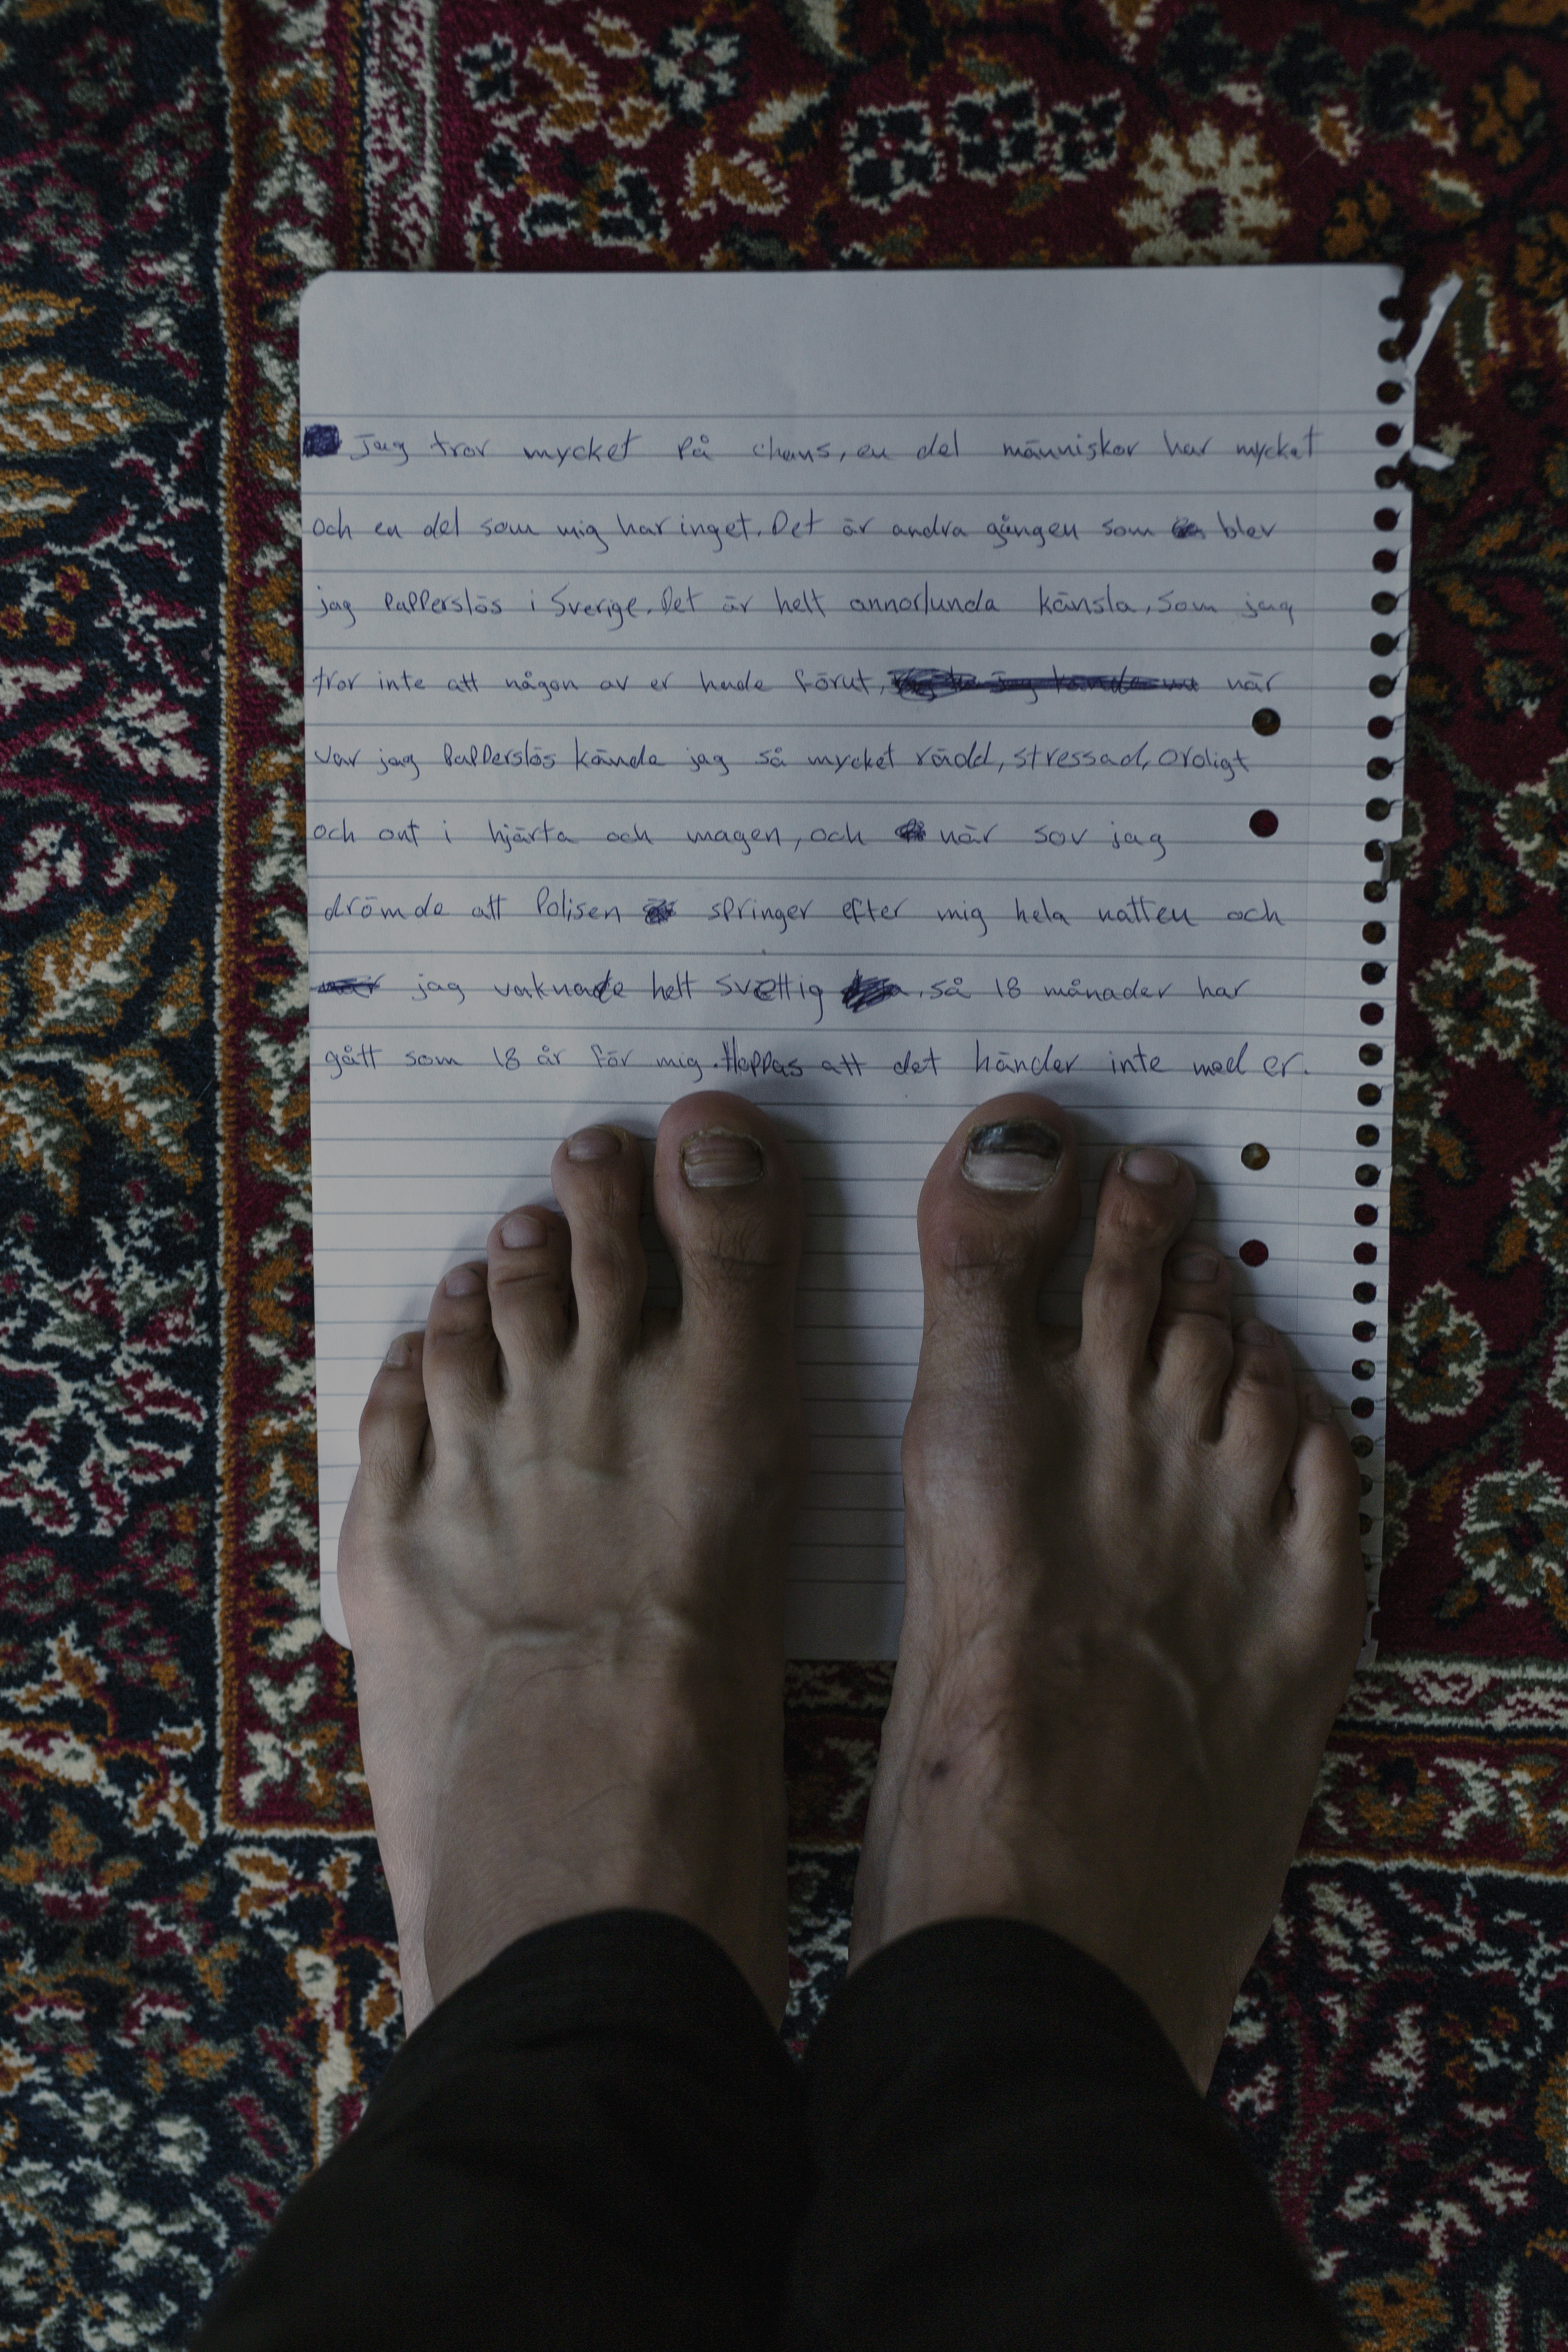 Jag tror mycket på chans, en del människor har mycket
och en del som mig har inget. Det är andra gången som blev
jag Papperslös i Sverige. Det är helt annorlunda känsla, som jag
tror inte att någon av er hade förut, när
var jag Papperslös kände jag så mycket rädd, stressad, oroligt
och ont i hjärta och magen, och när sov jag
drömde att Polisen springer efter mig hela natten och
jag vaknade helt svettig, så 18 månader har
gått som 18 år för mig. Hoppas att det händer inte med er.